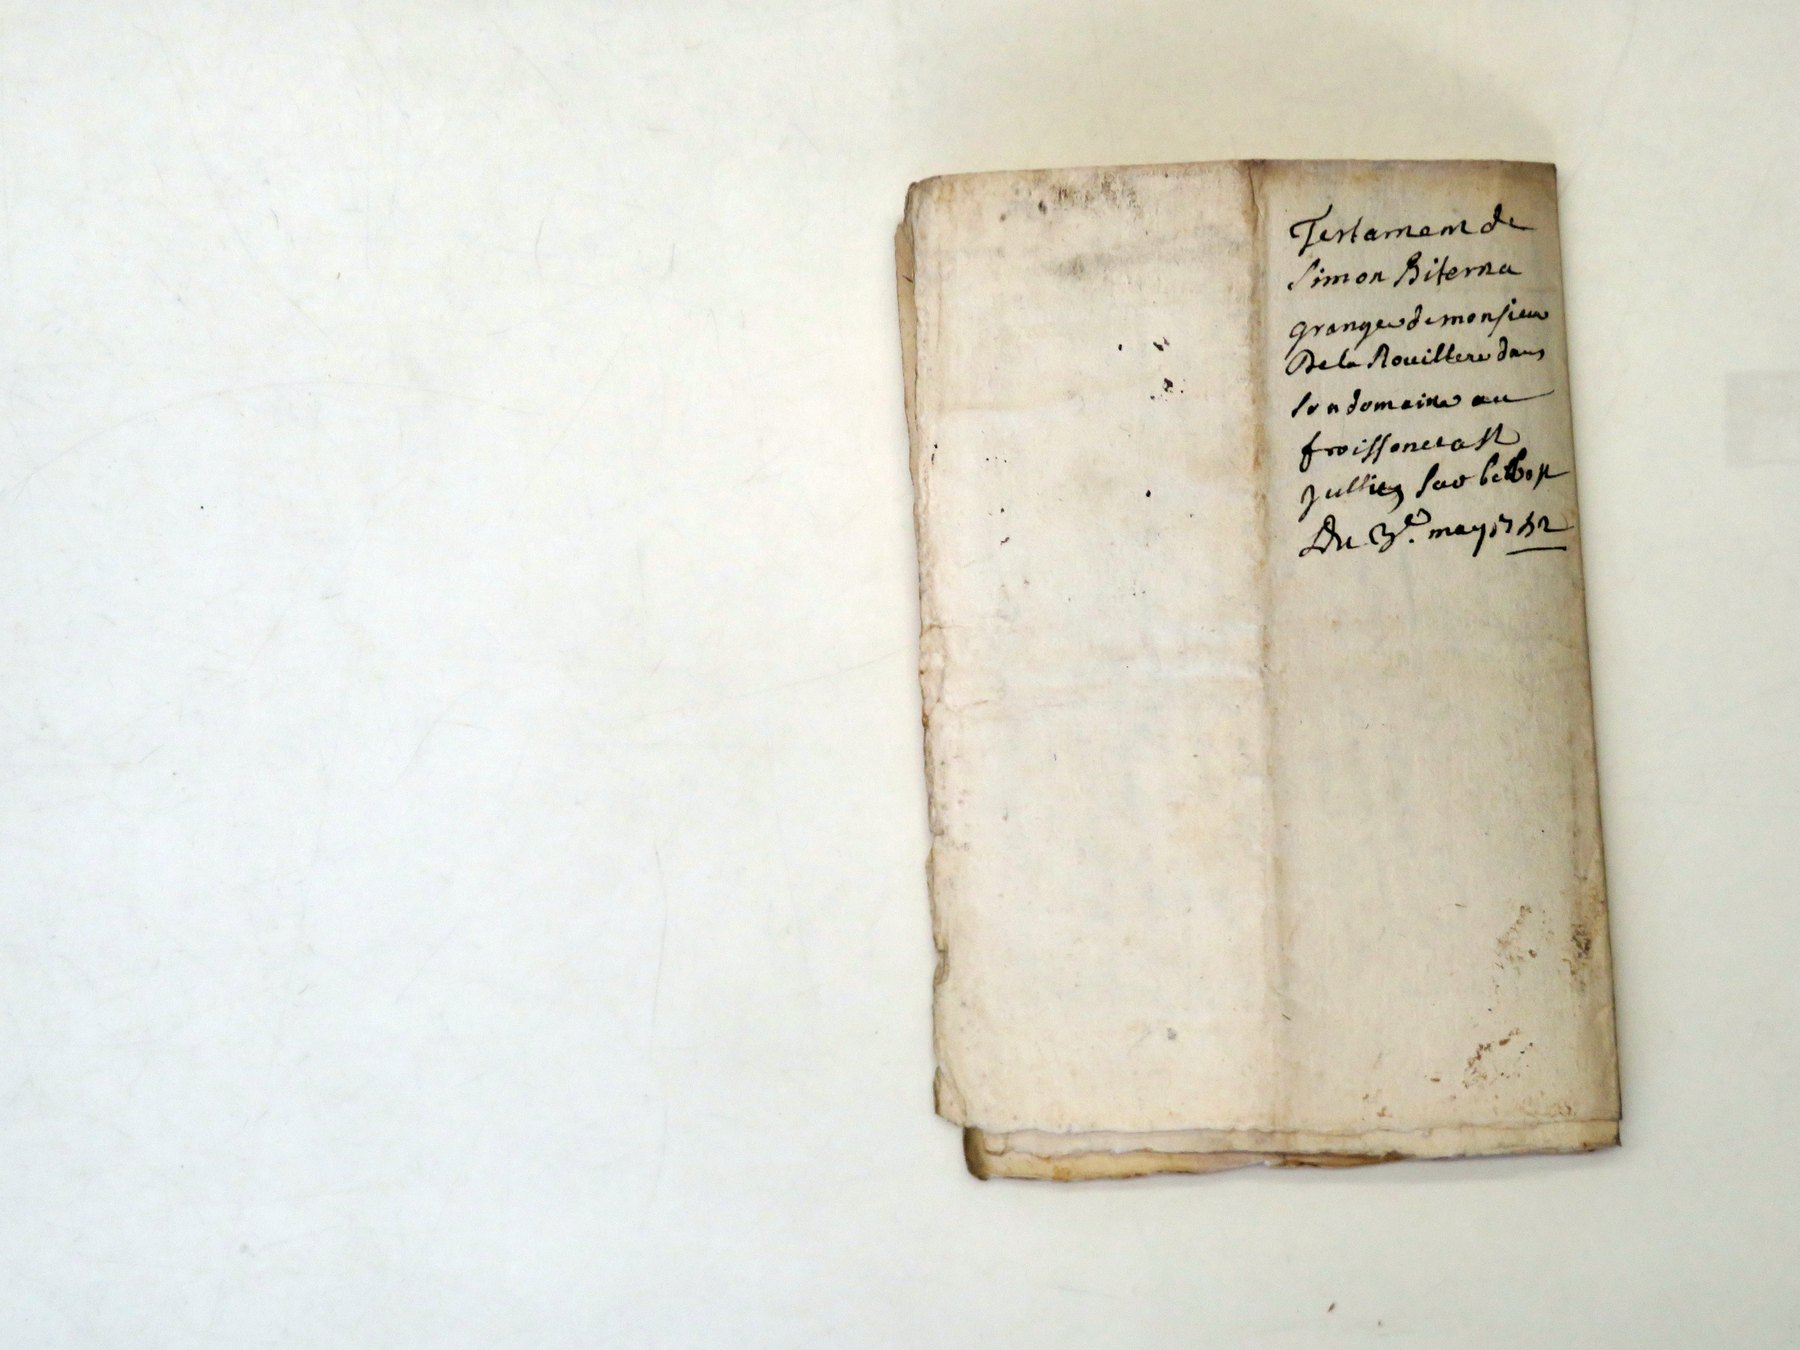 Testament de
Simon Biterna
granger de monsieur
De la Rouillere dans
son domaine au
froissonet a St
jullien sur bibost
Du 3e. may 1752